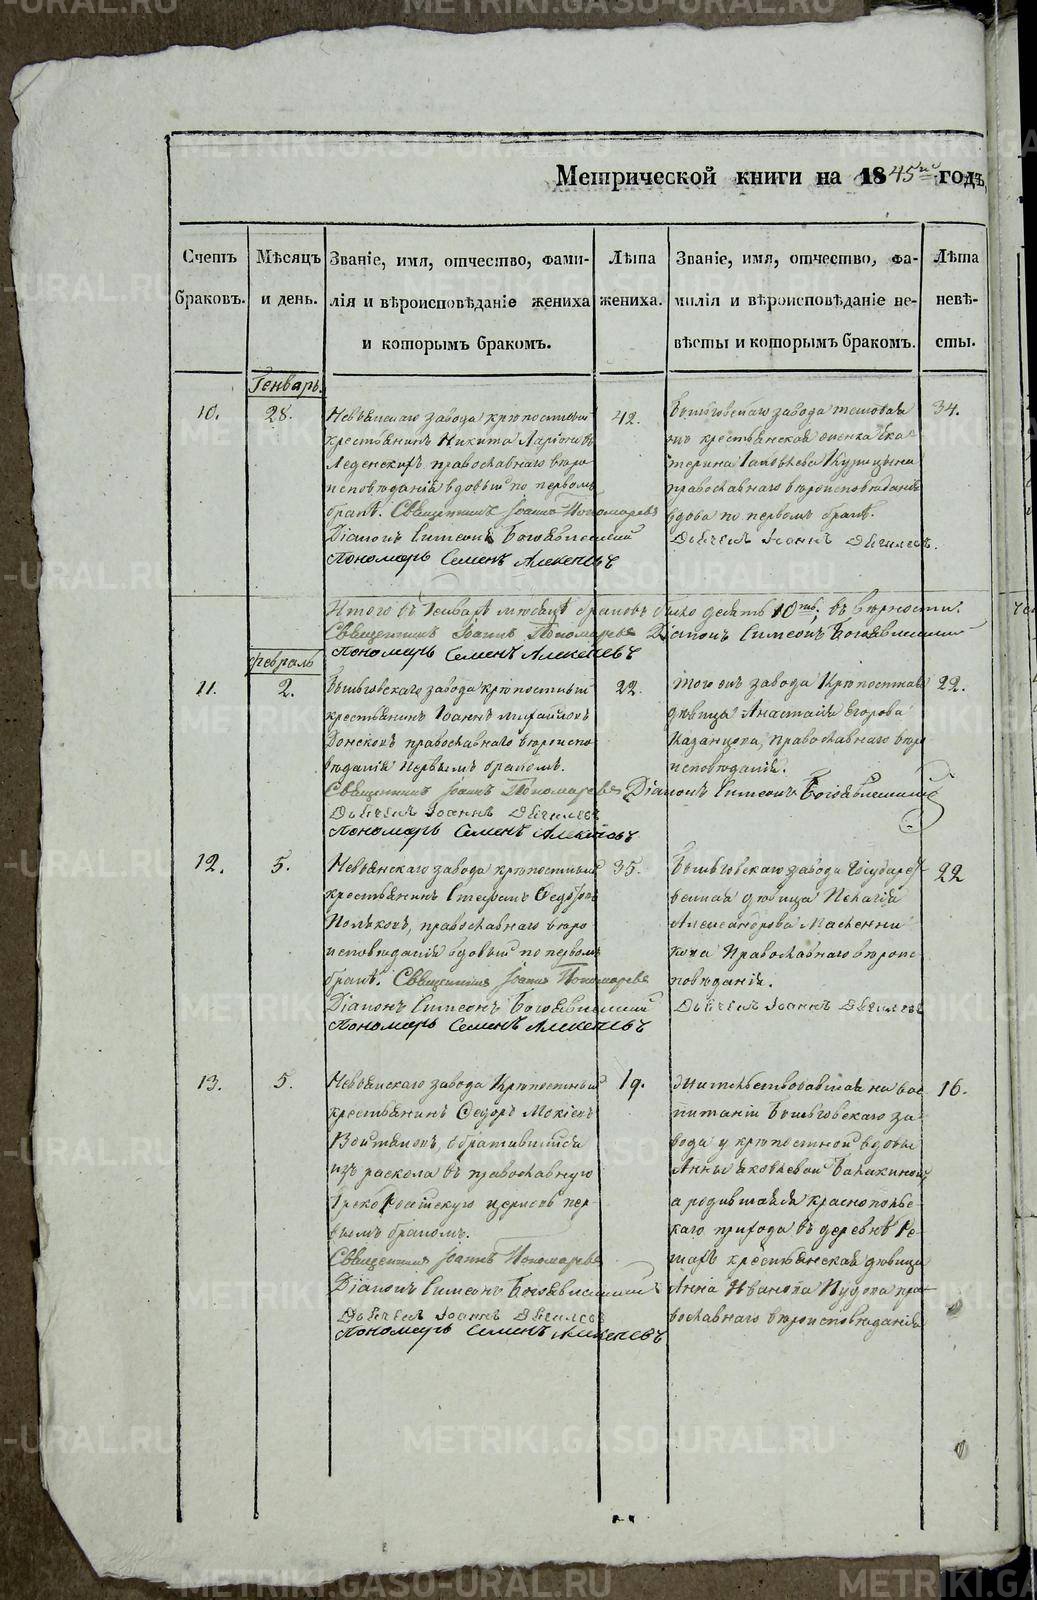 Метрической книги на 1845й годъ
Счетъ браковъ.
Мѣсяцъ и день.
Званіе, имя, отчество, фами-
лія и вѣроисповѣданіе жениха
и которымъ бракомъ.
Лѣта жениха.
Званіе, имя, отчество, фа-
милія и вѣроисповѣданіе не-
вѣсты и которымъ бракомъ.
Лѣта невѣ-
сты.
Генварь.
10.
28.
Невьянскаго завода крѣпостный
крестьянинъ Никита Ларіоновъ
православнаго вѣро
исповѣданія вдовый по первомъ
бракѣ. Священникъ Іоаннъ Пономаревъ
Діаконъ Симеонъ Богоявленскій
Пономарь Семенъ Алексѣевъ
42.
Быньговскаго завода
крестьянская женка Ека
терина Яковлева Курицына
православнаго вѣроисповѣданія
вдова по первомъ бракѣ.
Дьячекъ Іоаннъ
34.
Итого въ Генварѣ мѣсяцѣ браковъ было десять 10ть, въ вѣрности.
Священникъ Іоаннъ Пономаревъ Діаконъ Симеонъ Богоявленскій
Пономарь Семенъ Алексѣевъ
февраль
11.
2.
Быньговскаго завода крѣпостный
крестьянинъ Іоаннъ Михайловъ
Донсковъ православнаго вѣроиспо
вѣданія первымъ бракомъ.
Священникъ Іоаннъ Пономаревъ Діаконъ Симеонъ Богоявленскій
Дьячекъ Іоаннъ
Пономарь Семенъ Алексѣевъ
22.
того жъ завода Крѣпостная
дѣвица Анастасія Егорова
Казанцова, православнаго вѣро
исповѣданія.
22.
12.
5.
Невьянскаго завода крѣпостный
крестьянинъ Стефанъ Федотовъ
Поляковъ, православнаго вѣро
исповѣданія вдовый по первомъ
бракѣ. Священникъ Іоаннъ Пономаревъ
Діаконъ Симеонъ Богоявленскій
Пономарь Семенъ Алексѣевъ
35.
Быньговскаго завода Государст
венная дѣвица Пелагія
Александрова Масленни
кова Православнаго вѣроис
повѣданія.
Дьячекъ Іоаннъ
22
13.
5.
Невьянскаго завода Крѣпостный
крестьянинъ Федоръ Мокіевъ
обратившійся
изъ раскола въ православную
Грекороссійскую церковь пер
вымъ бракомъ.
Священникъ Іоаннъ Пономаревъ
Діаконъ Симеонъ Богоявленскій
Дьячекъ Іоаннъ
Пономарь Семенъ Алексѣевъ
19.
жительствовавшая на вос
питаніи Быньговскаго за-
вода у крѣпостной вдовы
Анны Яковлевой Балакиной,
а родившаяся краснополь-
скаго прихода въ деревнѣ Ре-
шахъ крестьянская дѣвица
Анна Иванова Пудова пра-
вославнаго вѣроисповѣданія
16.
METRIKI.GASO-URAL.RU